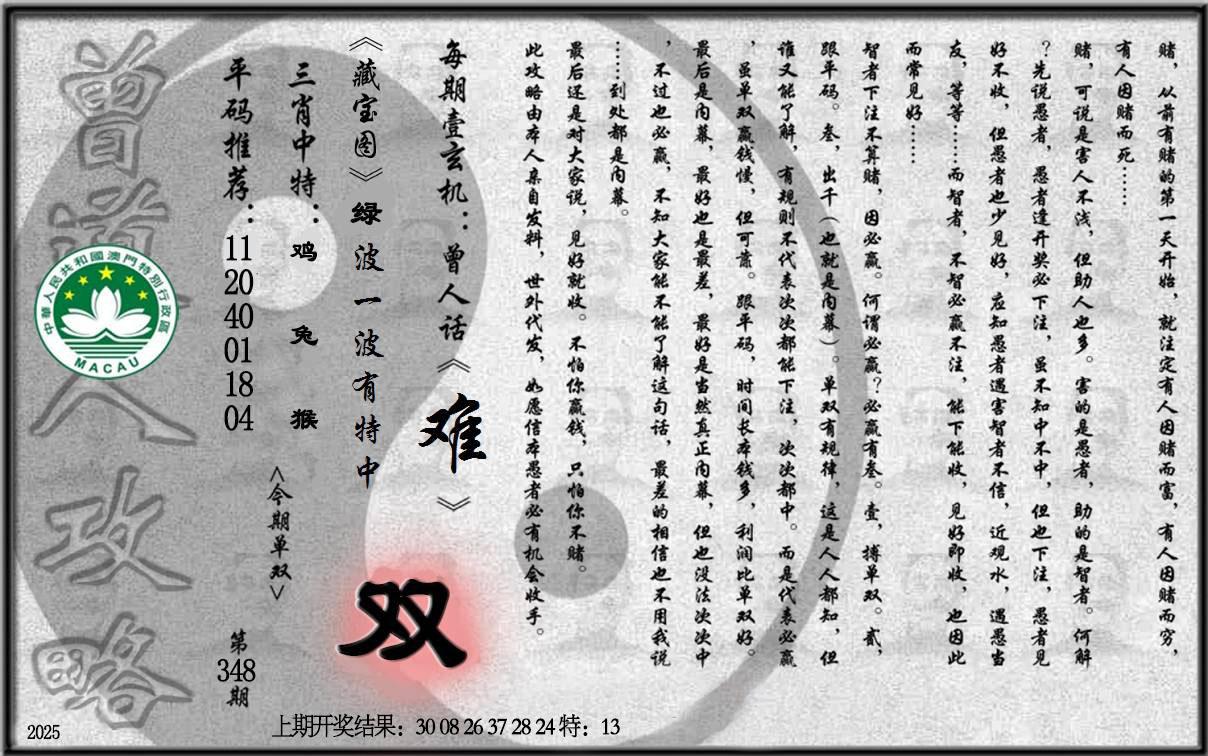 赌，从前有赌的第一天开始，就注定有人因赌而富，有人因赌而穷，
有人因赌而死……
赌，可说是害人不浅，但助人也多。害的是愚者，助的是智者。何解
？先说愚者，愚者逢开奖必下注，虽不知中不中，但也下注，愚者见
好不收，但愚者也少见好，应知愚者遇害智者不信，近观水，遇愚当
友，等等……而智者，不智必赢不注，能下能收，见好即收，也因此
而常见好……
智者下注不算赌，因必赢。何谓必赢？必赢有叁。壹，搏单双。贰，
跟平码。叁，出千（也就是内幕）。单双有规律，这是人人都知，但
谁又能了解，有规则不代表次次都能下注，次次都中。而是代表必赢
，虽单双赢钱慢，但可靠。跟平码，时间长本钱多，利润比单双好。
最后是内幕，最好也是最差，最好是当然真正内幕，但也没法次次中
，不过也必赢，不知大家能不能了解这句话，最差的相信也不用我说
……到处都是内幕。
最后还是对大家说，见好就收。不怕你赢钱，只怕你不赌。
此攻略由本人亲自发料，世外代发，如愿信本愚者必有机会收手。
每期壹玄机：曾人话《难》
《藏宝图》绿波一波有特中
双
三肖中特：鸡 兔 猴
<今期单双>
平码推荐：
11
20
40
01
18
04
第
348
期
曾道人攻略
中華人民共和國澳門特別行政區
MACAU
2025
上期开奖结果：30 08 26 37 28 24 特：13